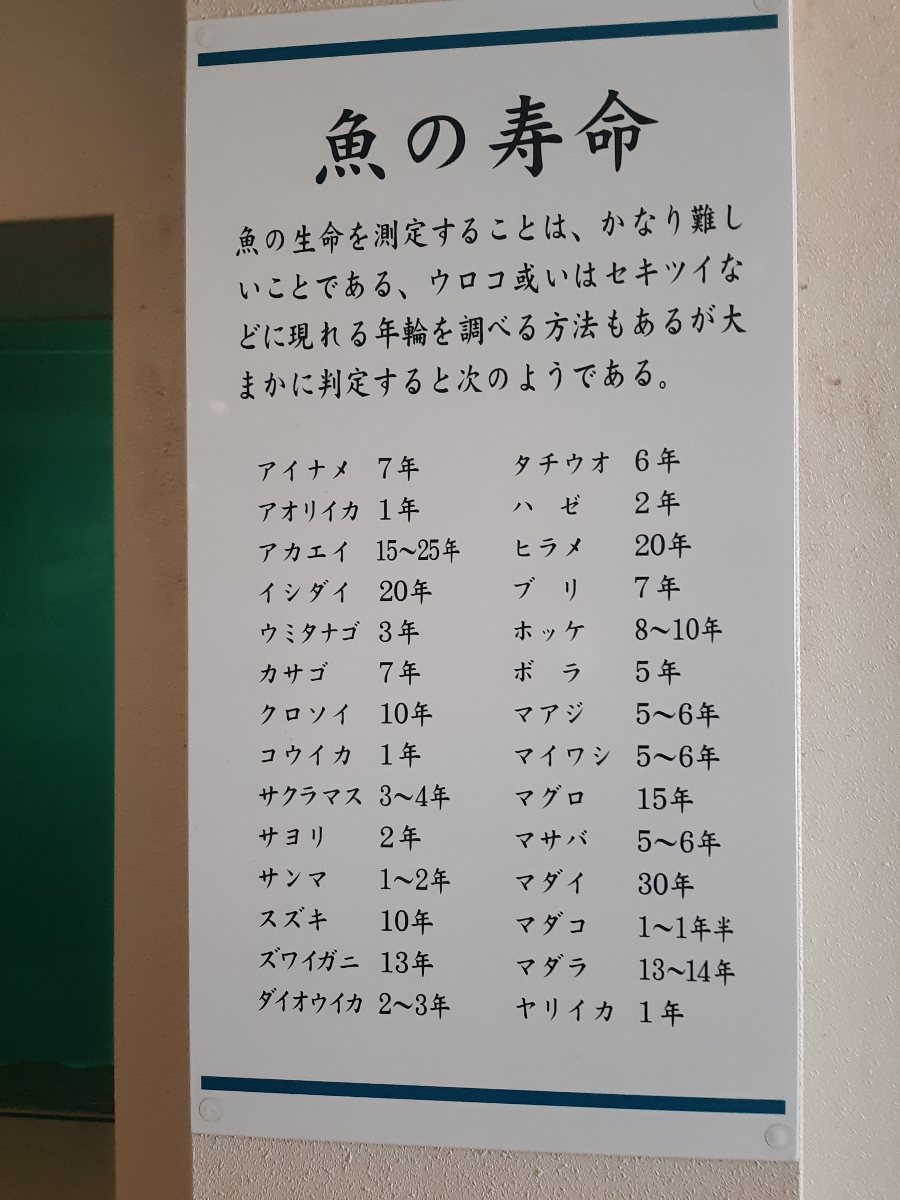 魚の寿命
魚の生命を測定することは、かなり難し
いことである、ウロコ或いはセキツイな
どに現れる年輪を調べる方法もあるが大
まかに判定すると次のようである。
アイナメ 7年
アオリイカ 1年
アカエイ 15〜25年
イシダイ 20年
ウミタナゴ 3年
カサゴ 7年
クロソイ 10年
コウイカ 1年
サクラマス 3〜4年
サヨリ 2年
サンマ 1〜2年
スズキ 10年
ズワイガニ 13年
ダイオウイカ 2〜3年
タチウオ 6年
ハゼ 2年
ヒラメ 20年
ブリ 7年
ホッケ 8〜10年
ボラ 5年
マアジ 5〜6年
マイワシ 5〜6年
マグロ 15年
マサバ 5〜6年
マダイ 30年
マダコ 1〜1年半
マダラ 13〜14年
ヤリイカ 1年